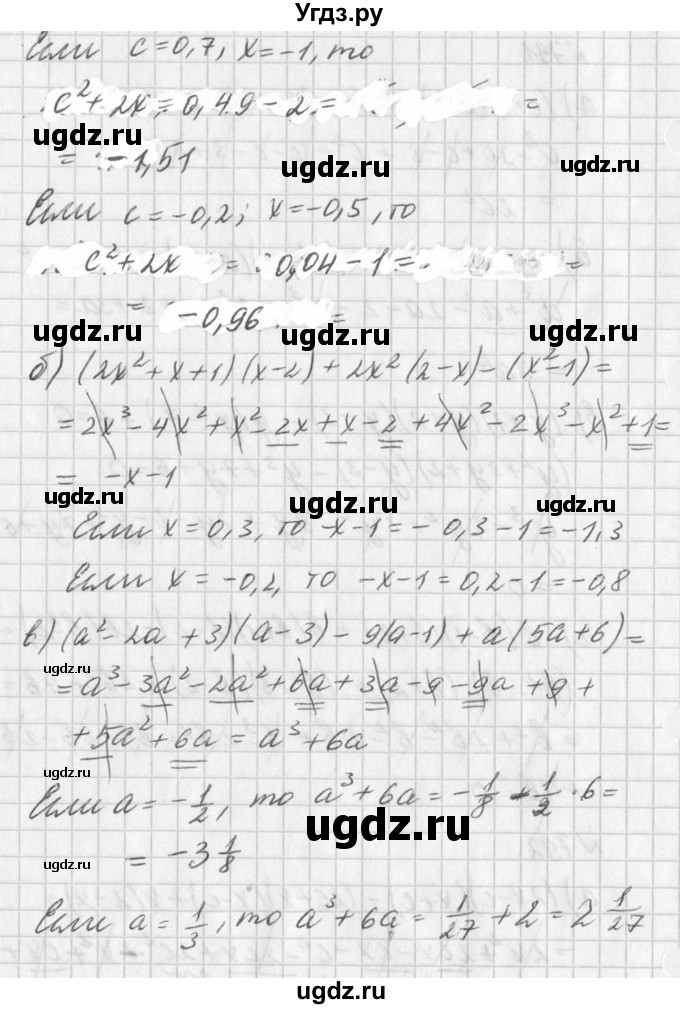 Угдз.ру
Если c=0,7, x=-1, то
c²+2x=0,49-2= =
ugdz.ru ugdz.ru
= -1,51 ugdz.ru
Если c=-0,2; x=-0,5, то
c²+2x = 0,04-1= =
= -0,96 =
ugdz.ru ugdz.ru ugdz.ru
б) (2x²+x+1)(x-2)+2x²(2-x)-(x²-1)=
=2x³-4x²+x²-2x+x-2+4x²-2x³-x²+1=
= -x-1
ugdz.ru ugdz.ru ugdz.ru
Если x=0,3, то -x-1=-0,3-1=-1,3
Если x=-0,2, то -x-1=0,2-1=-0,8
в) (a²-2a+3)(a-3)-9(a-1)+a(5a+6)=
ugdz.ru ugdz.ru ugdz.ru
=a³-3a²-2a²+6a+3a-9-9a+9+
+5a²+6a=a³+6a
Если a=-1/2, то a³+6a=-1/8-1/2·6=
ugdz.ru
ugdz.ru = -3 1/8 ugdz.ru
Если a=1/3, то a³+6a=1/27+2=2 1/27
ugdz.ru
ugdz.ru